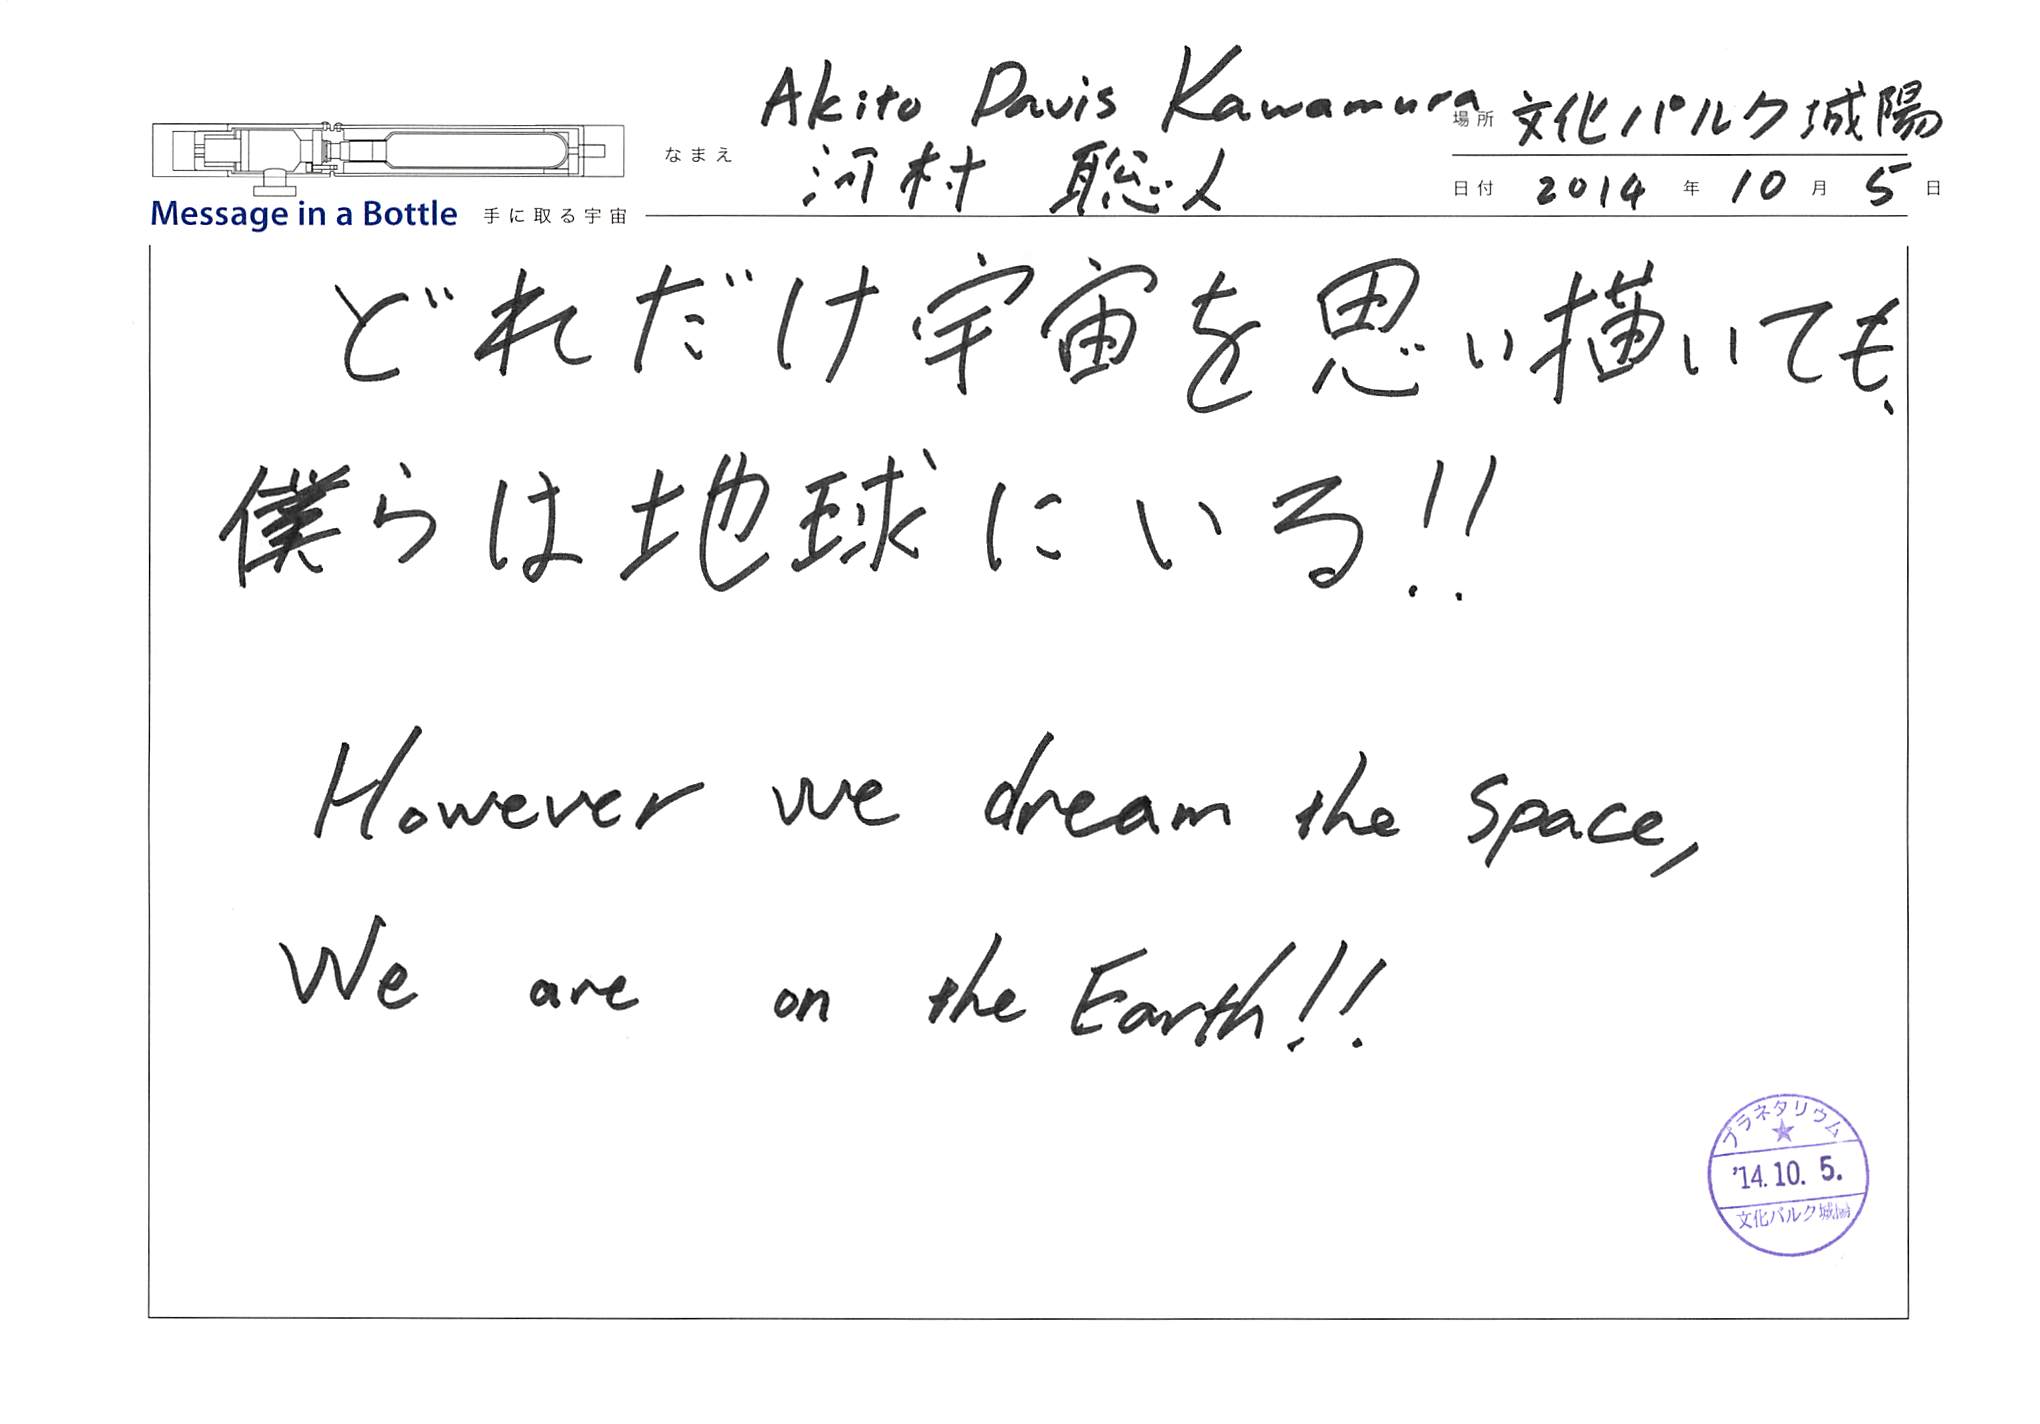 Akito Davis Kawamura
なまえ
河村 聡人
場所 文化パルク城陽
日付 2014 年 10 月 5 日
Message in a Bottle 手に取る宇宙
どれだけ宇宙を思い描いても、
僕らは地球にいる!!
However we dream the space,
We are on the Earth!!
プラネタリウム
★
'14.10.5.
文化パルク城陽